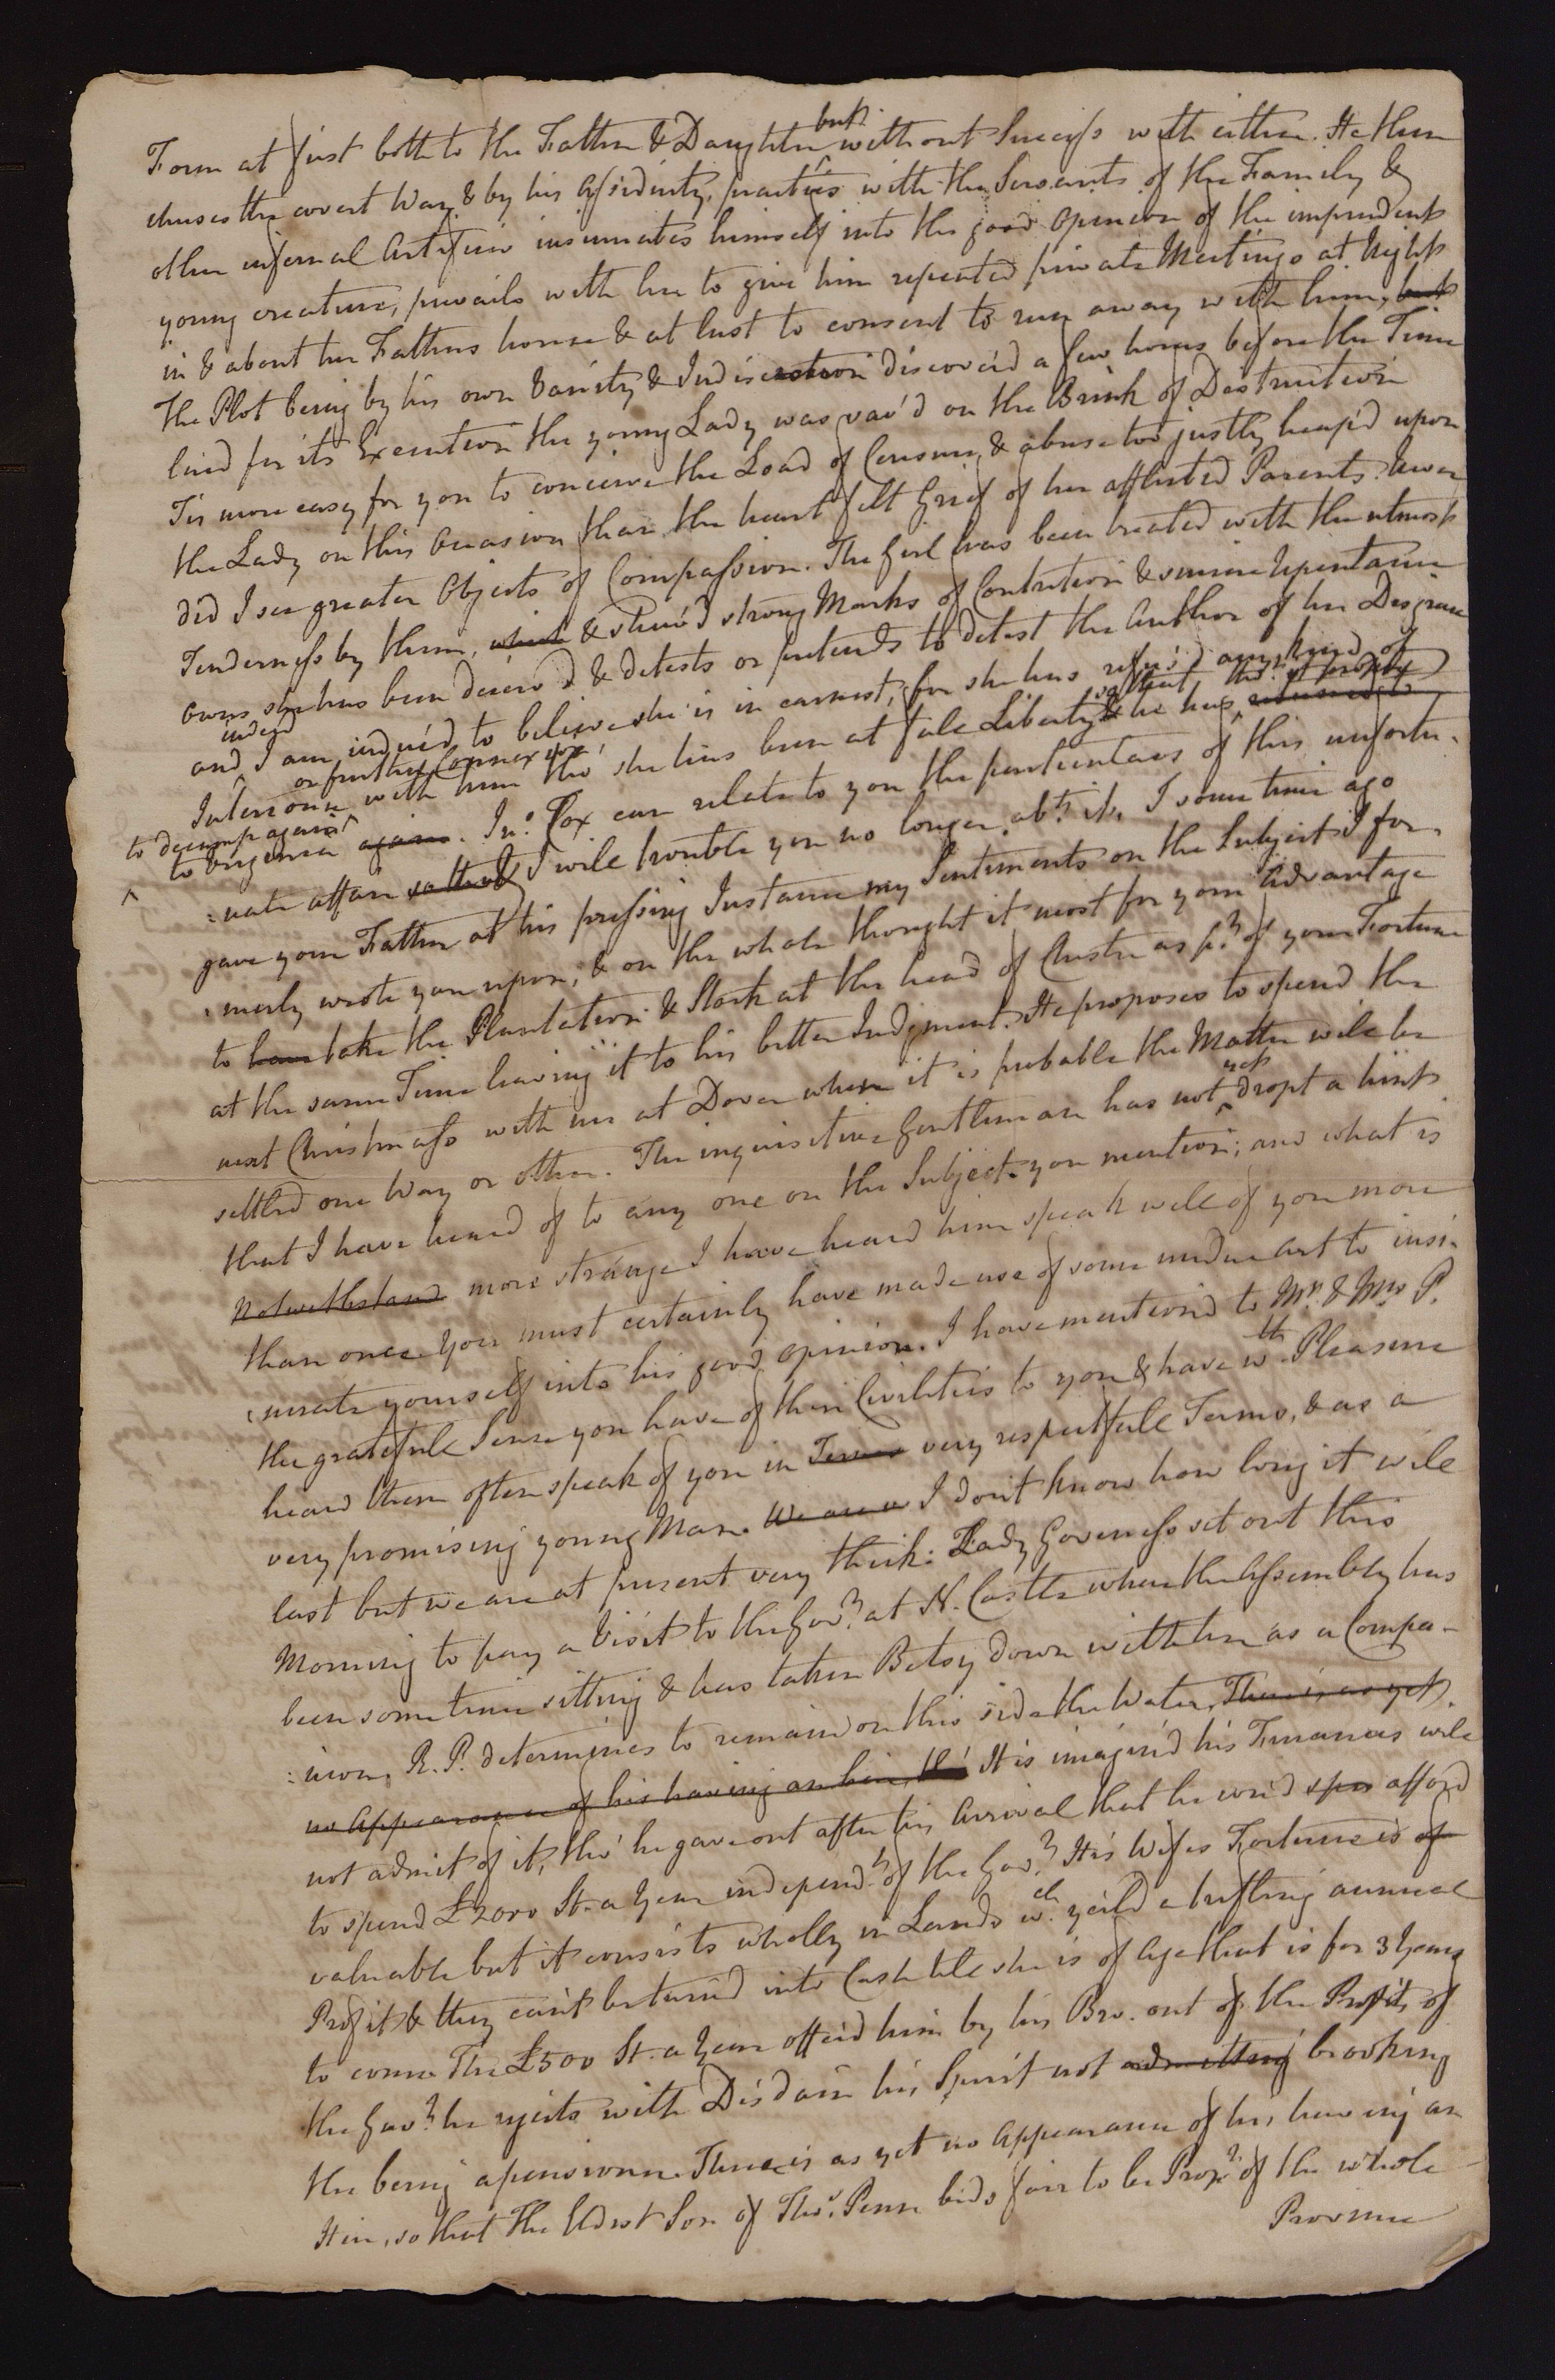 Form at first both to the Father & Daughter but without Success with either. He then
chuses the covert Way & by his Assiduity, practices with the Servants of the Family &
other infernal Artifices insinuates himself into the good Opinion of the imprudent
young creature, prevails with her to give him repeated private Meetings at Night
in & about her Fathers house & at last to consent to run away with him, but
The Plot being by his own Vanity & Indiscretion discover'd a few hours before the Time
fixed for its Execution the young Lady was sav'd on the Brink of Destruction
Tis more easy for you to conceive the Load of Censure & abuse too justly heap'd upon
the Lady on this Occasion than the heart felt Grief of her afflicted Parents. Never
did I see greater Objects of Compassion. The Girl has been treated with the utmost
Tenderness by them, which & shew'd strong Marks of Contrition & sincere Repentance
owns she has been deceiv'd & detests or pretends to detest the Author of her Disgrace
and indeed I am induc'd to believe she is in earnest, for she has refus'd any kind of
Intercourse or further Connexion with him tho' she has been at full Liberty & he has
to decamp again
to Virginia again. Jno. Cox can relate to you the particulars of this unfortu-
:nate affair so that I will trouble you no longer abt. it. I some time ago
gave your Father at his pressing Instance my Sentiments on the Subject I for-
:merly wrote you upon, & on the whole thought it most for your Advantage
to have take the Plantation & Stock at the head of Chester as pt. of your Fortune
at the same Time leaving it to his better Judgment. He proposes to spend the
next Christmass with us at Dover where it is probable the Matter will be
settled one Way or other. The inquisitive Gentleman has not yet dropt a hint
that I have heard of to any one on the Subject you mention; and what is
Notwithstand more strange I have heard him speak well of you more
than once. You must certainly have made use of some undue Art to insi-
:nuate yourself into his good opinion. I have mention'd to Mr. & Mrs P.
the grateful Sense you have of their Civilities to you & have wth. Pleasure
heard them often speak of you in Terms very respectfull Terms, & as a
very promising young Man. We are a I don't know how long it will
last but we are at present very thick: Lady Governess set out this
Morning to pay a Visit to the Govr. at N. Castle where the Assembly has
been some time sitting & has taken Betsy down with her as a Compa-
:nion. R. P. determines to remain on this side the Water, There is as yet
no Appearance of his having an heir, tho' It is imagin'd his Finances will
not admit of it, tho' he gave out after his Arrival that he cou'd spen afford
to spend £2000 St. a Year independt. of the Govr. His Wifes Fortune is of
valuable but it consists wholly in Lands wch. yeild a trifling annual
Profit & they can't be turn'd into Cash till she is of Age that is for 3 Years
to come. The £500 St. a Year offer'd him by his Bro. out of the Profits of
the Govt. he rejects with Disdain his Spirit not admitting brooking
the being a pensioner. There is as yet no Appearance of his having an
Heir, so that the Eldest Son of Thos. Penn bids fair to be Propr. of the whole
Province